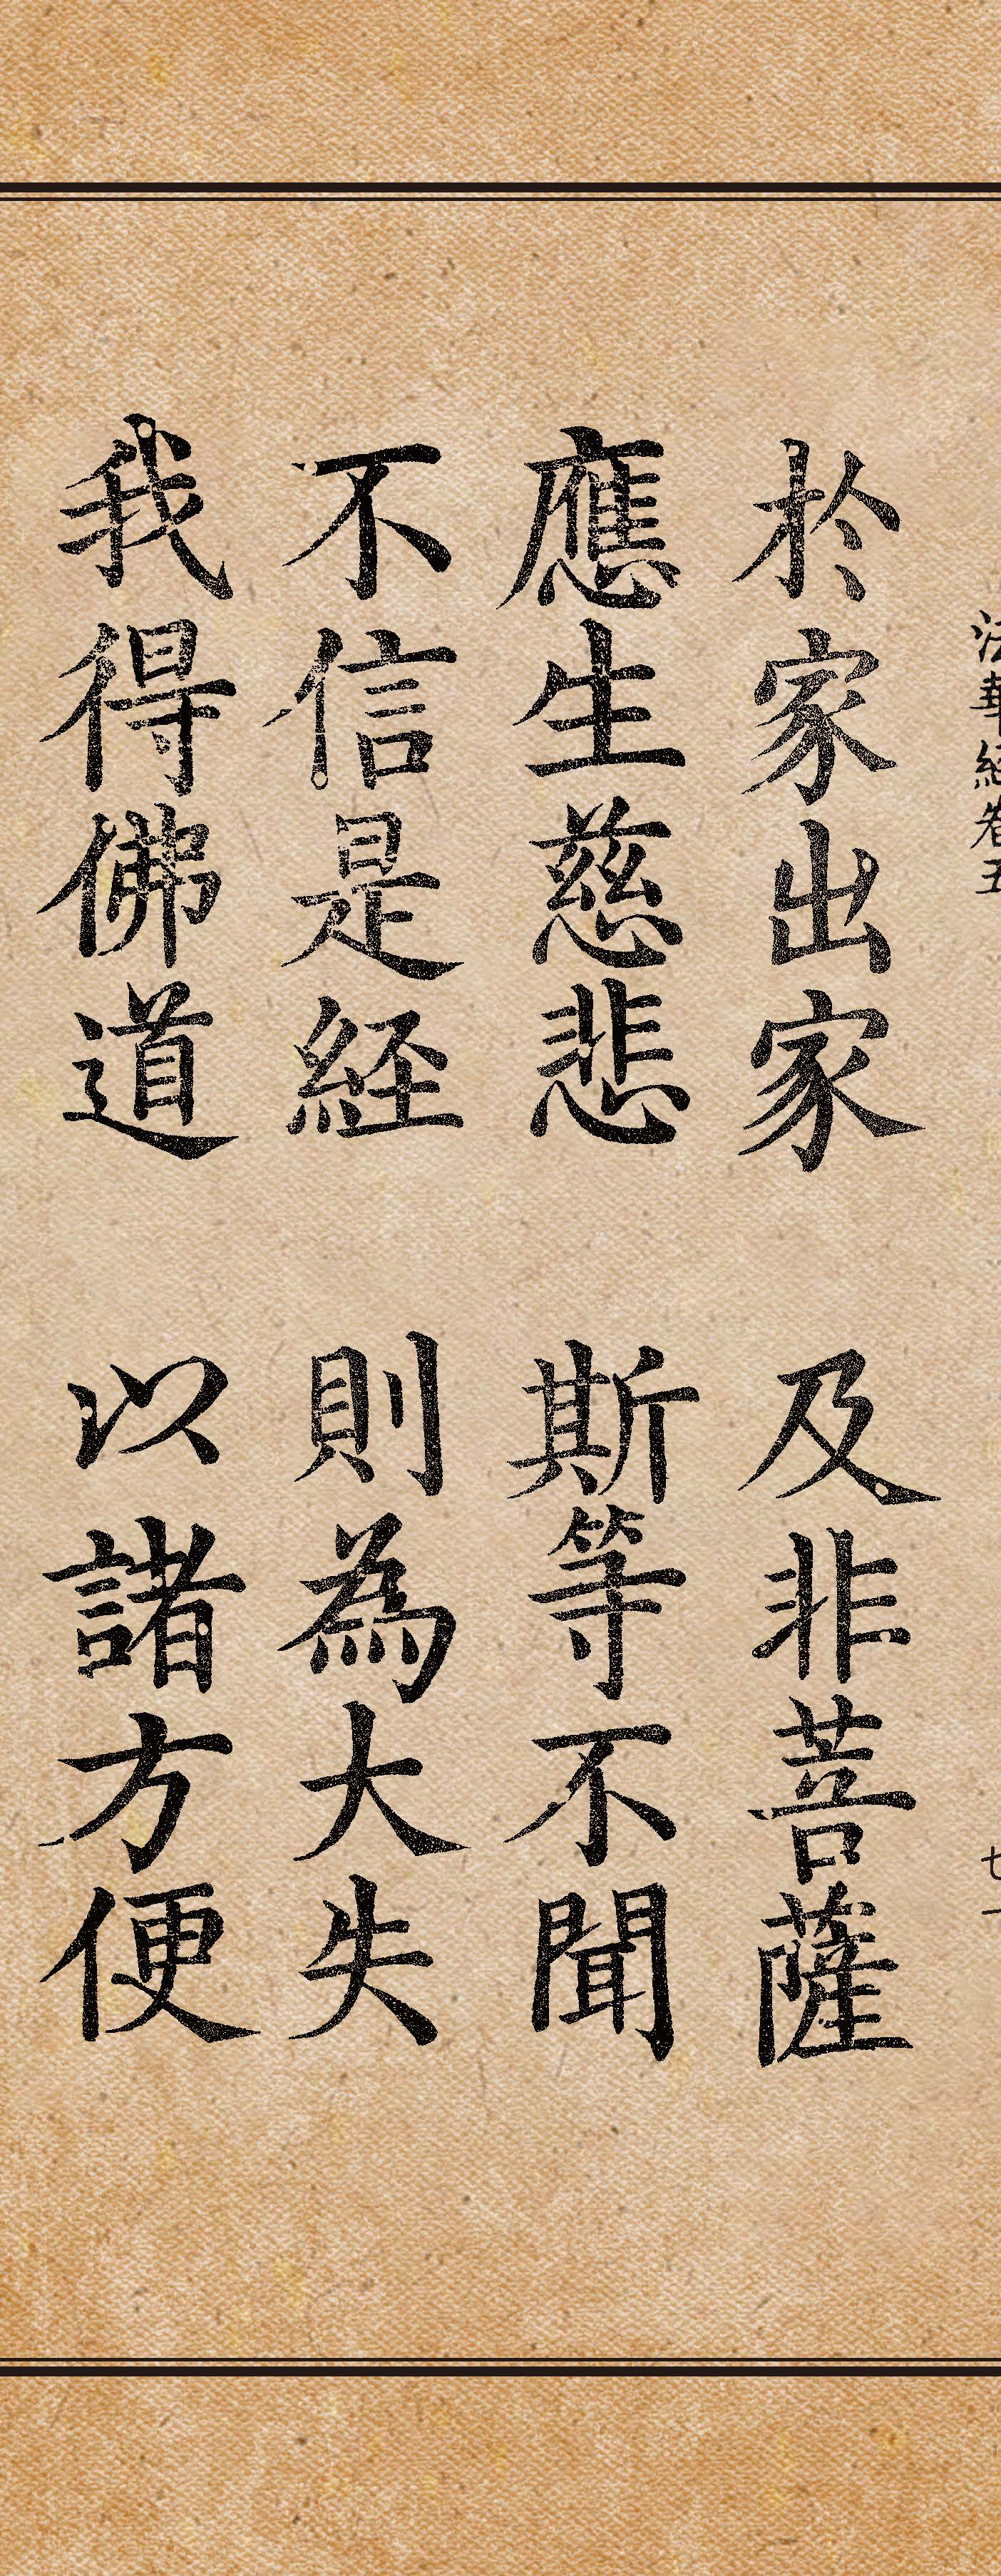 法華経卷五
七一
於家出家　及非菩薩
應生慈悲　斯等不聞
不信是経　則為大失
我得佛道　以諸方便